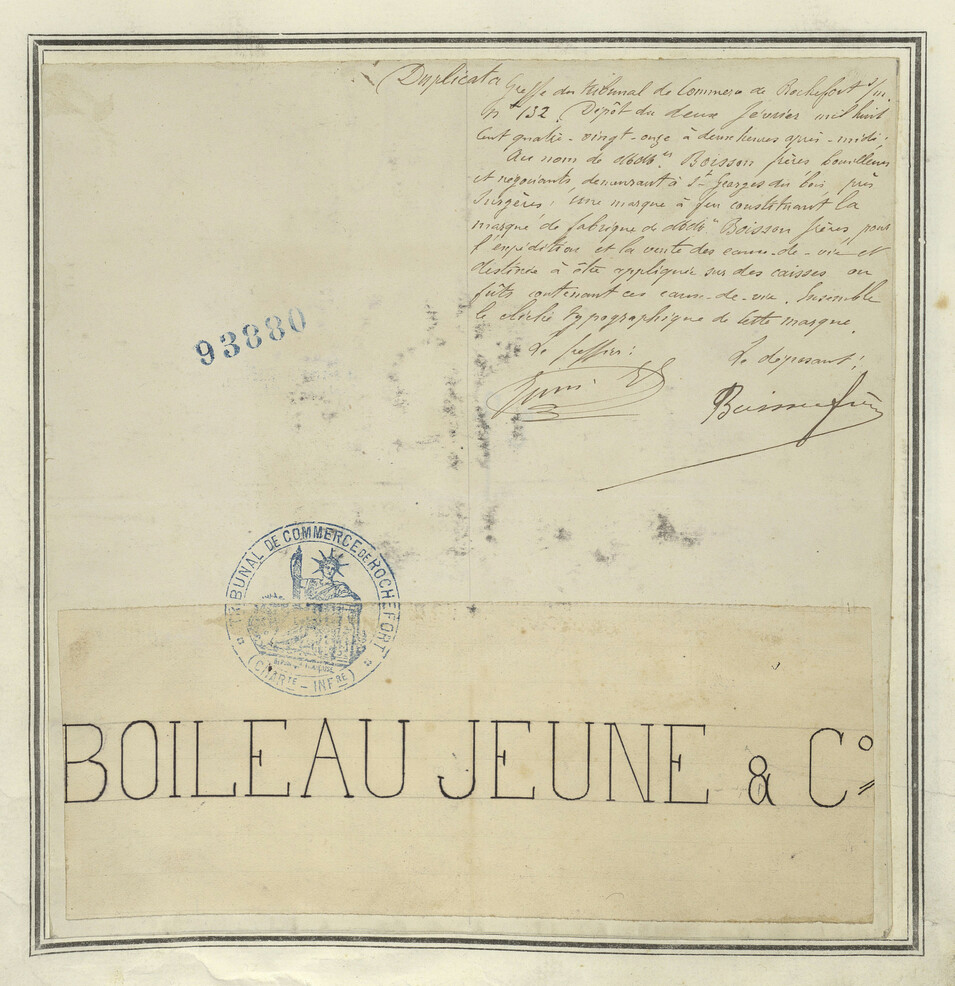 Duplicata
Greffe du Tribunal de Commerce de Rochefort s/m.
N° 132. Dépôt du deux février mil huit
cent quatre-vingt-onze à deux heures après-midi:
Au nom de MM. Boisson frères bouilleurs
et négociants, demeurant à St Georges du bois, près
Surgères: une marque à feu constituant la
marque de fabrique de MM. Boisson frères pour
l'expédition et la vente des eaux-de-vie et
destinée à être appliquée sur des caisses ou
fûts contenant ces eaux-de-vie. Ensemble
le cliché typographique de cette marque.
Le greffier:
Le déposant:
Boisson frères
93880
TRIBUNAL DE COMMERCE DE ROCHEFORT
(CHARTE - INFRE)
BOILEAU JEUNE & C°